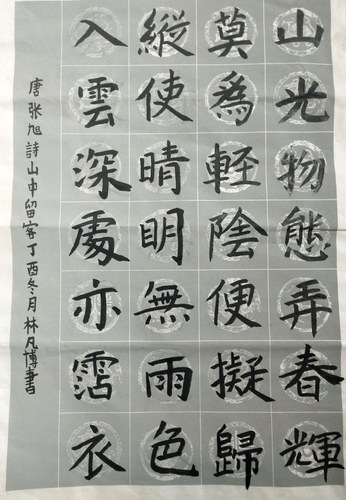 山光物態弄春輝
莫為輕陰便擬歸
縱使晴明無雨色
入雲深處亦霑衣
唐张旭詩山中留客丁酉冬月林凡博書